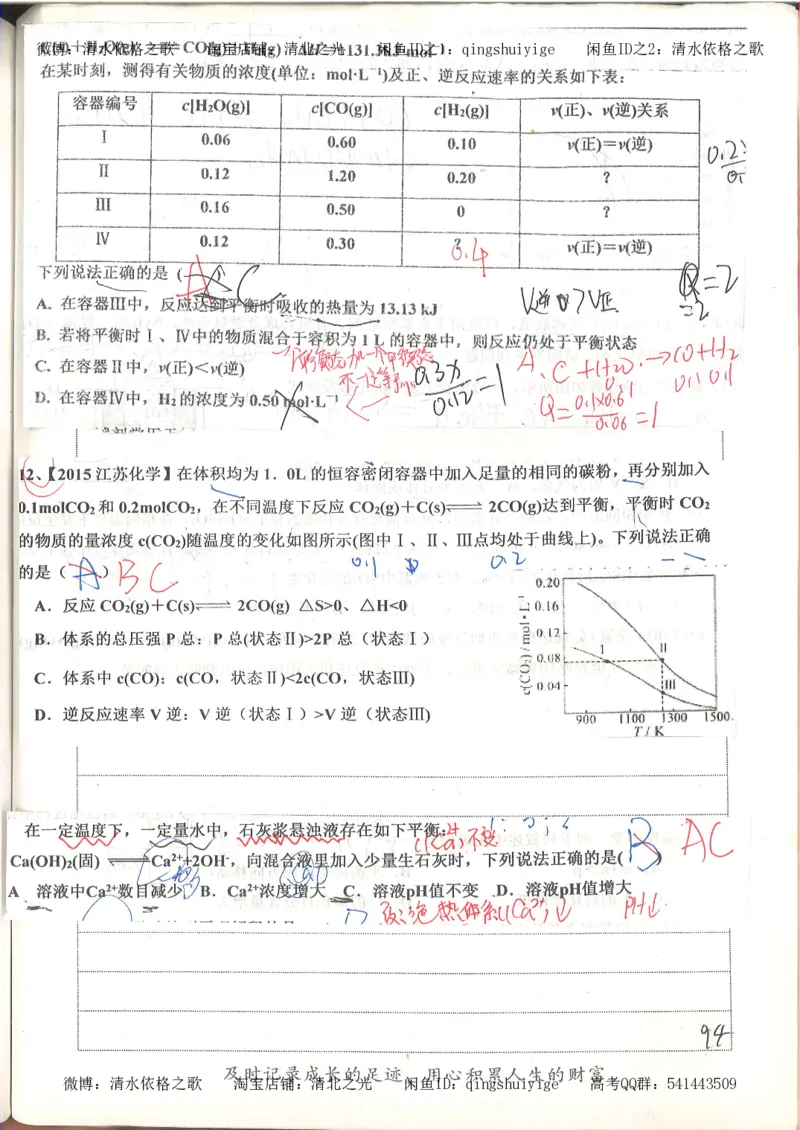 微博：清水依格之歌 淘宝店铺：清北之光 闲鱼ID之1：qingshuiyige 闲鱼ID之2：清水依格之歌
在某时刻，测得有关物质的浓度(单位：mol·L⁻¹)及正、逆反应速率的关系如下表：
容器编号 c[H₂O(g)] c[CO(g)] c[H₂(g)] v(正)、v(逆)关系
Ⅰ 0.06 0.60 0.10 v(正)＝v(逆)
Ⅱ 0.12 1.20 0.20 ?
Ⅲ 0.16 0.50 0 ?
Ⅳ 0.12 0.30 ? v(正)＝v(逆)
0.4
下列说法正确的是（
A C
Q=2
A．在容器Ⅲ中，反应达到平衡时吸收的热量为 13.13 kJ
V逆 > V正
B．若将平衡时Ⅰ、Ⅳ中的物质混合于容积为 1 L 的容器中，则反应仍处于平衡状态
C．在容器Ⅱ中，v(正)＜v(逆)
A、C+H₂O → CO+H₂
0.1 0.1
0.3x/0.12=1
D．在容器Ⅳ中，H₂ 的浓度为 0.50 mol·L⁻¹
Q= 0.1×0.6/0.06 =1
12、【2015 江苏化学】在体积均为 1．0L 的恒容密闭容器中加入足量的相同的碳粉，再分别加入
0.1molCO₂ 和 0.2molCO₂，在不同温度下反应 CO₂(g)＋C(s) ⇌ 2CO(g)达到平衡，平衡时 CO₂
的物质的量浓度 c(CO₂)随温度的变化如图所示(图中Ⅰ、Ⅱ、Ⅲ点均处于曲线上)。下列说法正确
的是（ A ）BC
0.1 0.2
A．反应 CO₂(g)＋C(s) ⇌ 2CO(g) △S>0、△H<0
B．体系的总压强 P 总：P 总(状态Ⅱ)>2P 总（状态Ⅰ）
C．体系中 c(CO)：c(CO，状态Ⅱ)<2c(CO，状态Ⅲ)
D．逆反应速率 V 逆：V 逆（状态Ⅰ）>V 逆（状态Ⅲ)
c(CO₂) / mol·L⁻¹
0.20
0.16
0.12
0.08
0.04
Ⅰ
Ⅱ
Ⅲ
900 1100 1300 1500
T / K
在一定温度下，一定量水中，石灰浆悬浊液存在如下平衡：
Ca(OH)₂(固) ⇌ Ca²⁺+2OH⁻，向混合液里加入少量生石灰时，下列说法正确的是( B ) AC
A 溶液中Ca²⁺数目减少 B．Ca²⁺浓度增大 C．溶液pH值不变 D．溶液pH值增大
PH↓
94
及时记录成长的足迹 用心积累人生的财富
微博：清水依格之歌 淘宝店铺：清北之光 闲鱼ID：qingshuiyige 高考QQ群：541443509